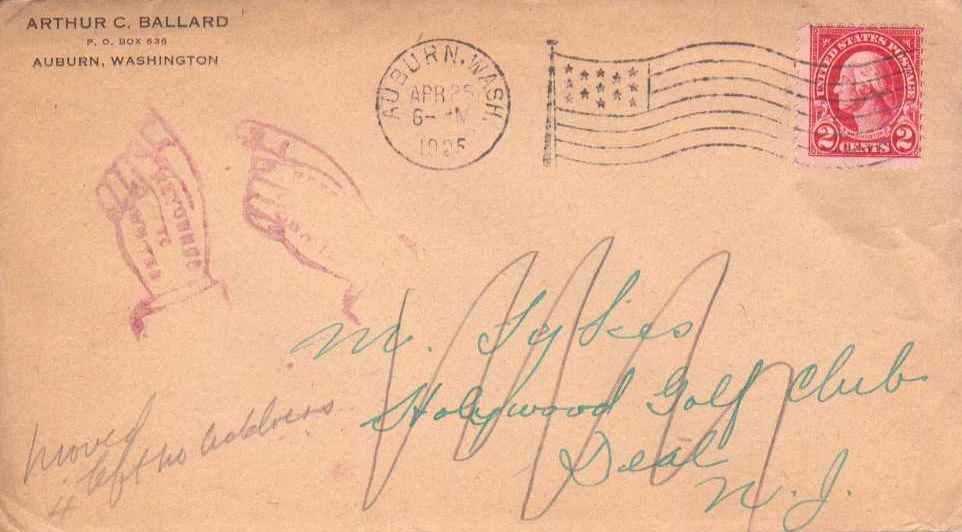 ARTHUR C. BALLARD
P. O. BOX 636
AUBURN, WASHINGTON
AUBURN, WASH.
APR 25
6- M
1925
UNITED STATES POSTAGE
2 CENTS 2
RETURNED
TO
WRITER
M. Sykes
Hollywood Golf Club
Deal
N. J.
Moved
Left no address
4